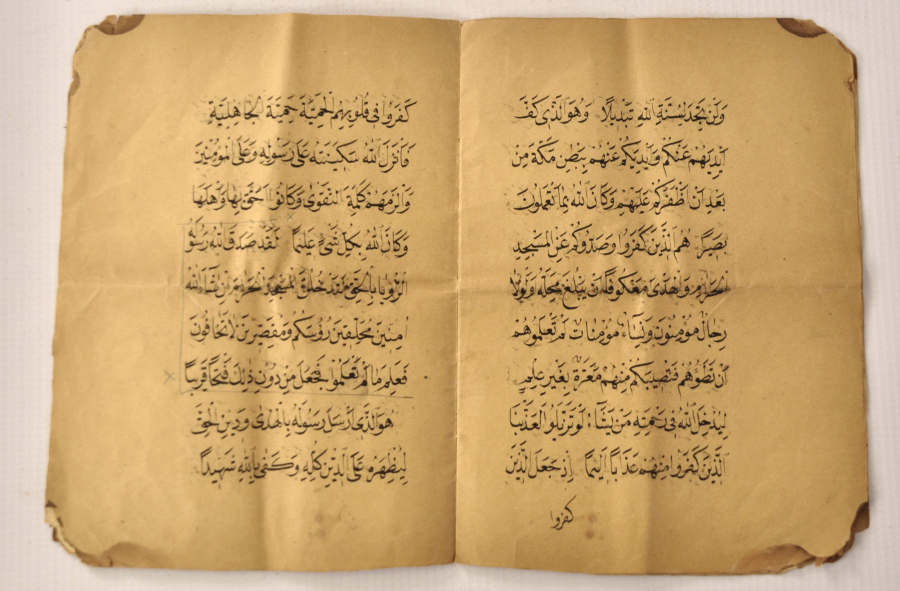 وَلَنْ تَجِدَ لِسُنَّةِ اللهِ تَبْدِيلًا وَهُوَ الَّذِى كَفَّ
اَيْدِيَهُمْ عَنْكُمْ وَاَيْدِيَكُمْ عَنْهُمْ بِبَطْنِ مَكَّةَ مِنْ
بَعْدِ اَنْ اَظْفَرَكُمْ عَلَيْهِمْ وَكَانَ اللهُ بِمَا تَعْمَلُونَ
بَصِيرًا هُمُ الَّذِينَ كَفَرُوا وَصَدُّوكُمْ عَنِ الْمَسْجِدِ
الْحَرَامِ وَالْهَدْىَ مَعْكُوفًا اَنْ يَبْلُغَ مَحِلَّهُ وَلَوْلَا
رِجَالٌ مُؤْمِنُونَ وَنِسَاءٌ مُؤْمِنَاتٌ لَمْ تَعْلَمُوهُمْ
اَنْ تَطَؤُهُمْ فَتُصِيبَكُمْ مِنْهُمْ مَعَرَّةٌ بِغَيْرِ عِلْمٍ
لِيُدْخِلَ اللهُ فِى رَحْمَتِهِ مَنْ يَشَاءُ لَوْ تَزَيَّلُوا لَعَذَّبْنَا
الَّذِينَ كَفَرُوا مِنْهُمْ عَذَابًا اَلِيمًا اِذْ جَعَلَ الَّذِينَ
كفروا
كَفَرُوا فِى قُلُوبِهِمُ الْحَمِيَّةَ حَمِيَّةَ الْجَاهِلِيَّةِ
فَاَنْزَلَ اللهُ سَكِينَتَهُ عَلَى رَسُولِهِ وَعَلَى الْمُؤْمِنِينَ
وَاَلْزَمَهُمْ كَلِمَةَ التَّقْوَى وَكَانُوا اَحَقَّ بِهَا وَاَهْلَهَا
وَكَانَ اللهُ بِكُلِّ شَىْءٍ عَلِيمًا لَقَدْ صَدَقَ اللهُ رَسُولَهُ
الرُّؤْيَا بِالْحَقِّ لَتَدْخُلُنَّ الْمَسْجِدَ الْحَرَامَ اِنْ شَاءَ اللهُ
اٰمِنِينَ مُحَلِّقِينَ رُؤُسَكُمْ وَمُقَصِّرِينَ لَا تَخَافُونَ
فَعَلِمَ مَا لَمْ تَعْلَمُوا فَجَعَلَ مِنْ دُونِ ذٰلِكَ فَتْحًا قَرِيبًا
هُوَ الَّذِى اَرْسَلَ رَسُولَهُ بِالْهُدٰى وَدِينِ الْحَقِّ
لِيُظْهِرَهُ عَلَى الدِّينِ كُلِّهِ وَكَفٰى بِاللهِ شَهِيدًا